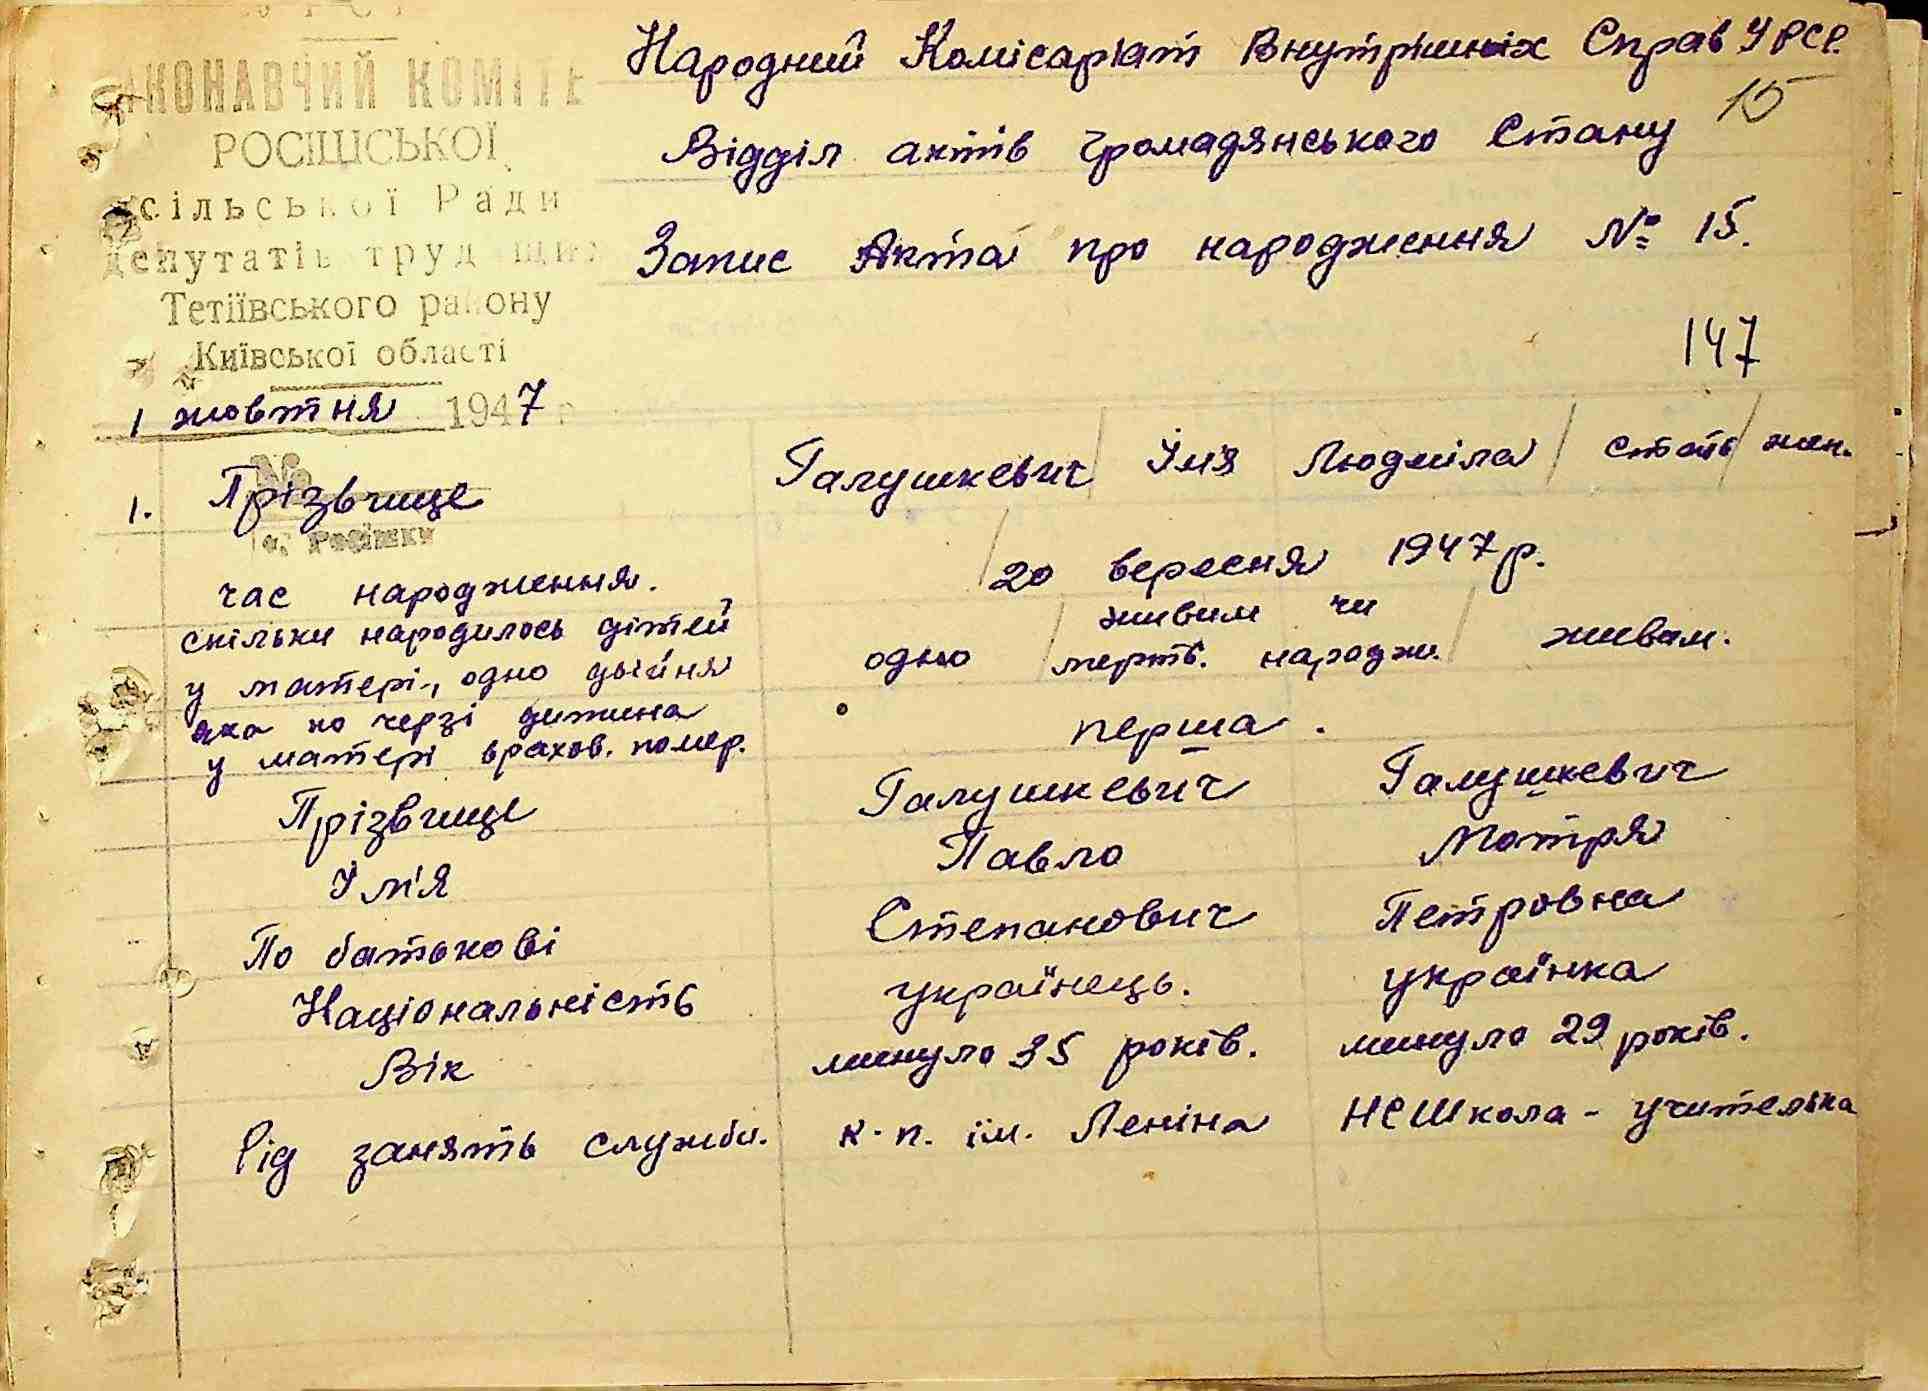 Народний Комісаріат Внутрішніх Справ УРСР.
15
Відділ актів громадянського Стану
Запис Акта про народження № 15.
147
ИКОНАВЧИЙ КОМІТЕ
РОСІШСЬКОЇ
сільської Ради
депутатів трудящих
Тетіївського району
Київської області
1 жовтня 1947 р
№
с. Росішки
1. Прізвище Галушкевич / Ім'я Людміла / стать / жен.
час народження. / 20 вересня 1947 р.
скільки народилось дітей
у матері, одно двійня одно / живим чи мертв. народж. / живим.
яка по черзі дитина
у матері врахов. помер. перша.
Прізвище Галушкевич Галушкевич
Ім'я Павло Мотря
По батькові Степанович Петровна
Національність українець. українка
Вік минуло 35 років. минуло 29 років.
Рід занять служби. к-п. ім. Леніна НСШкола - учителька